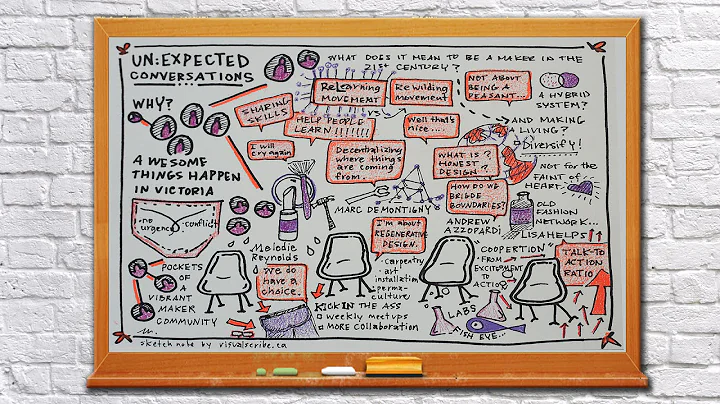 UN:EXPECTED
CONVERSATIONS
WHAT DOES IT MEAN TO BE A MAKER IN THE
21st CENTURY?
WHY?
SHARING
SKILLS
ReLearning
MOVEMENT
VS
Rewilding
movement
NOT ABOUT
BEING A
PEASANT...
A HYBRID
SYSTEM?
HELP PEOPLE
LEARN!!!!!!!
Well that's
nice....
AND MAKING
A LIVING?
Diversify!
I will
cry again
Decentralizing
where things
are coming
from.
WHAT IS?
HONEST
DESIGN?
NOT for the
FAINT OF
HEART
AWESOME
THINGS HAPPEN
IN VICTORIA
HOW DO WE
BRIGDE
BOUNDARIES?
MARC DEMONTIGNY
ANDREW
AZZOPARDI
OLD
FASHION
NETWORK...
LISA HELPS
-no
urgency
-conflict
I'm about
REGENERATIVE
DESIGN.
Melodie
Reynolds
We do
have a
choice.
-carpentry
-art
installation
perma-
culture
COOPERTION
-FROM
EXCITEMENT
TO
ACTION
TALK-TO
ACTION
RATIO
POCKETS
OF A
VIBRANT
MAKER
COMMUNITY
KICK IN THE ASS
weekly meetups
MORE COLLABORATION
LABS
FISH EYE...
sketch note by visualscribe.ca